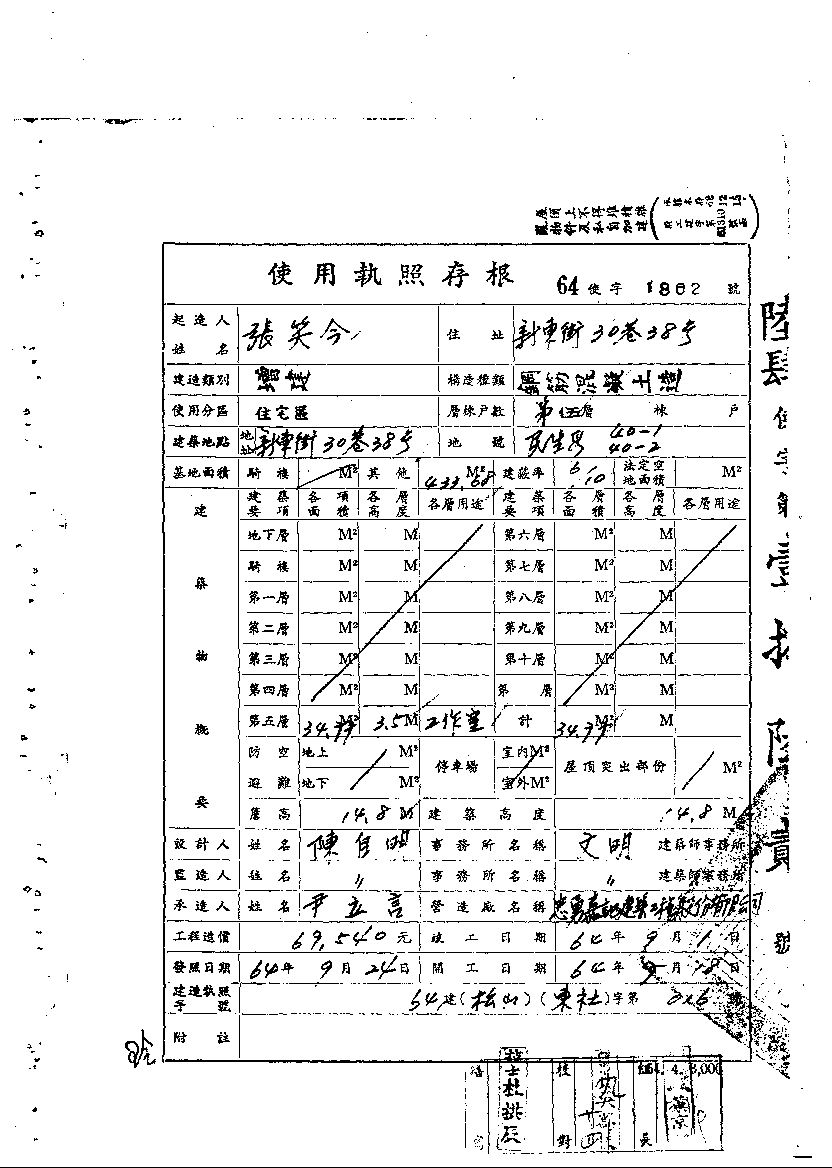 屋頂上不得堆積雜
物件及私自加建
使用執照存根 64 使字 1862 號
起造人姓名 張笑今 住址 新東街30巷38号
建造類別 增建 構造種類 鋼筋混凝土造
使用分區 住宅區 層棟戶數 第伍層 棟 戶
建築地點 地址 新東街30巷38号 地號 民生段 40-1 40-2
基地面積 騎樓 M² 其他 433.68 M² 建蔽率 6/10 法定空地面積 M²
建築物概要
建築要項 各項面積 各層高度 各層用途 建築要項 各層面積 各層高度 各層用途
地下層 M² M 第六層 M² M
騎樓 M² M 第七層 M² M
第一層 M² M 第八層 M² M
第二層 M² M 第九層 M² M
第三層 M² M 第十層 M² M
第四層 M² M 第 層 M² M
第五層 34.99 M² 3.5 M 工作室 計 34.99 M² M
防空避難 地上 M² 地下 M² 停車場 室內M² 室外M² 屋頂突出部份 M²
簷高 14.8 M 建築高度 14.8 M
設計人 姓名 陳自明 事務所名稱 文明 建築師事務所
監造人 姓名 〃 事務所名稱 〃 建築師事務所
承造人 姓名 尹立言 營造廠名稱
工程造價 69,540元 竣工日期 64年9月1日
發照日期 64年9月24日 開工日期 64年
建造執照字號 64建(松山)(東社)字第 號
附註
陸肆使字第壹
號
校對
長